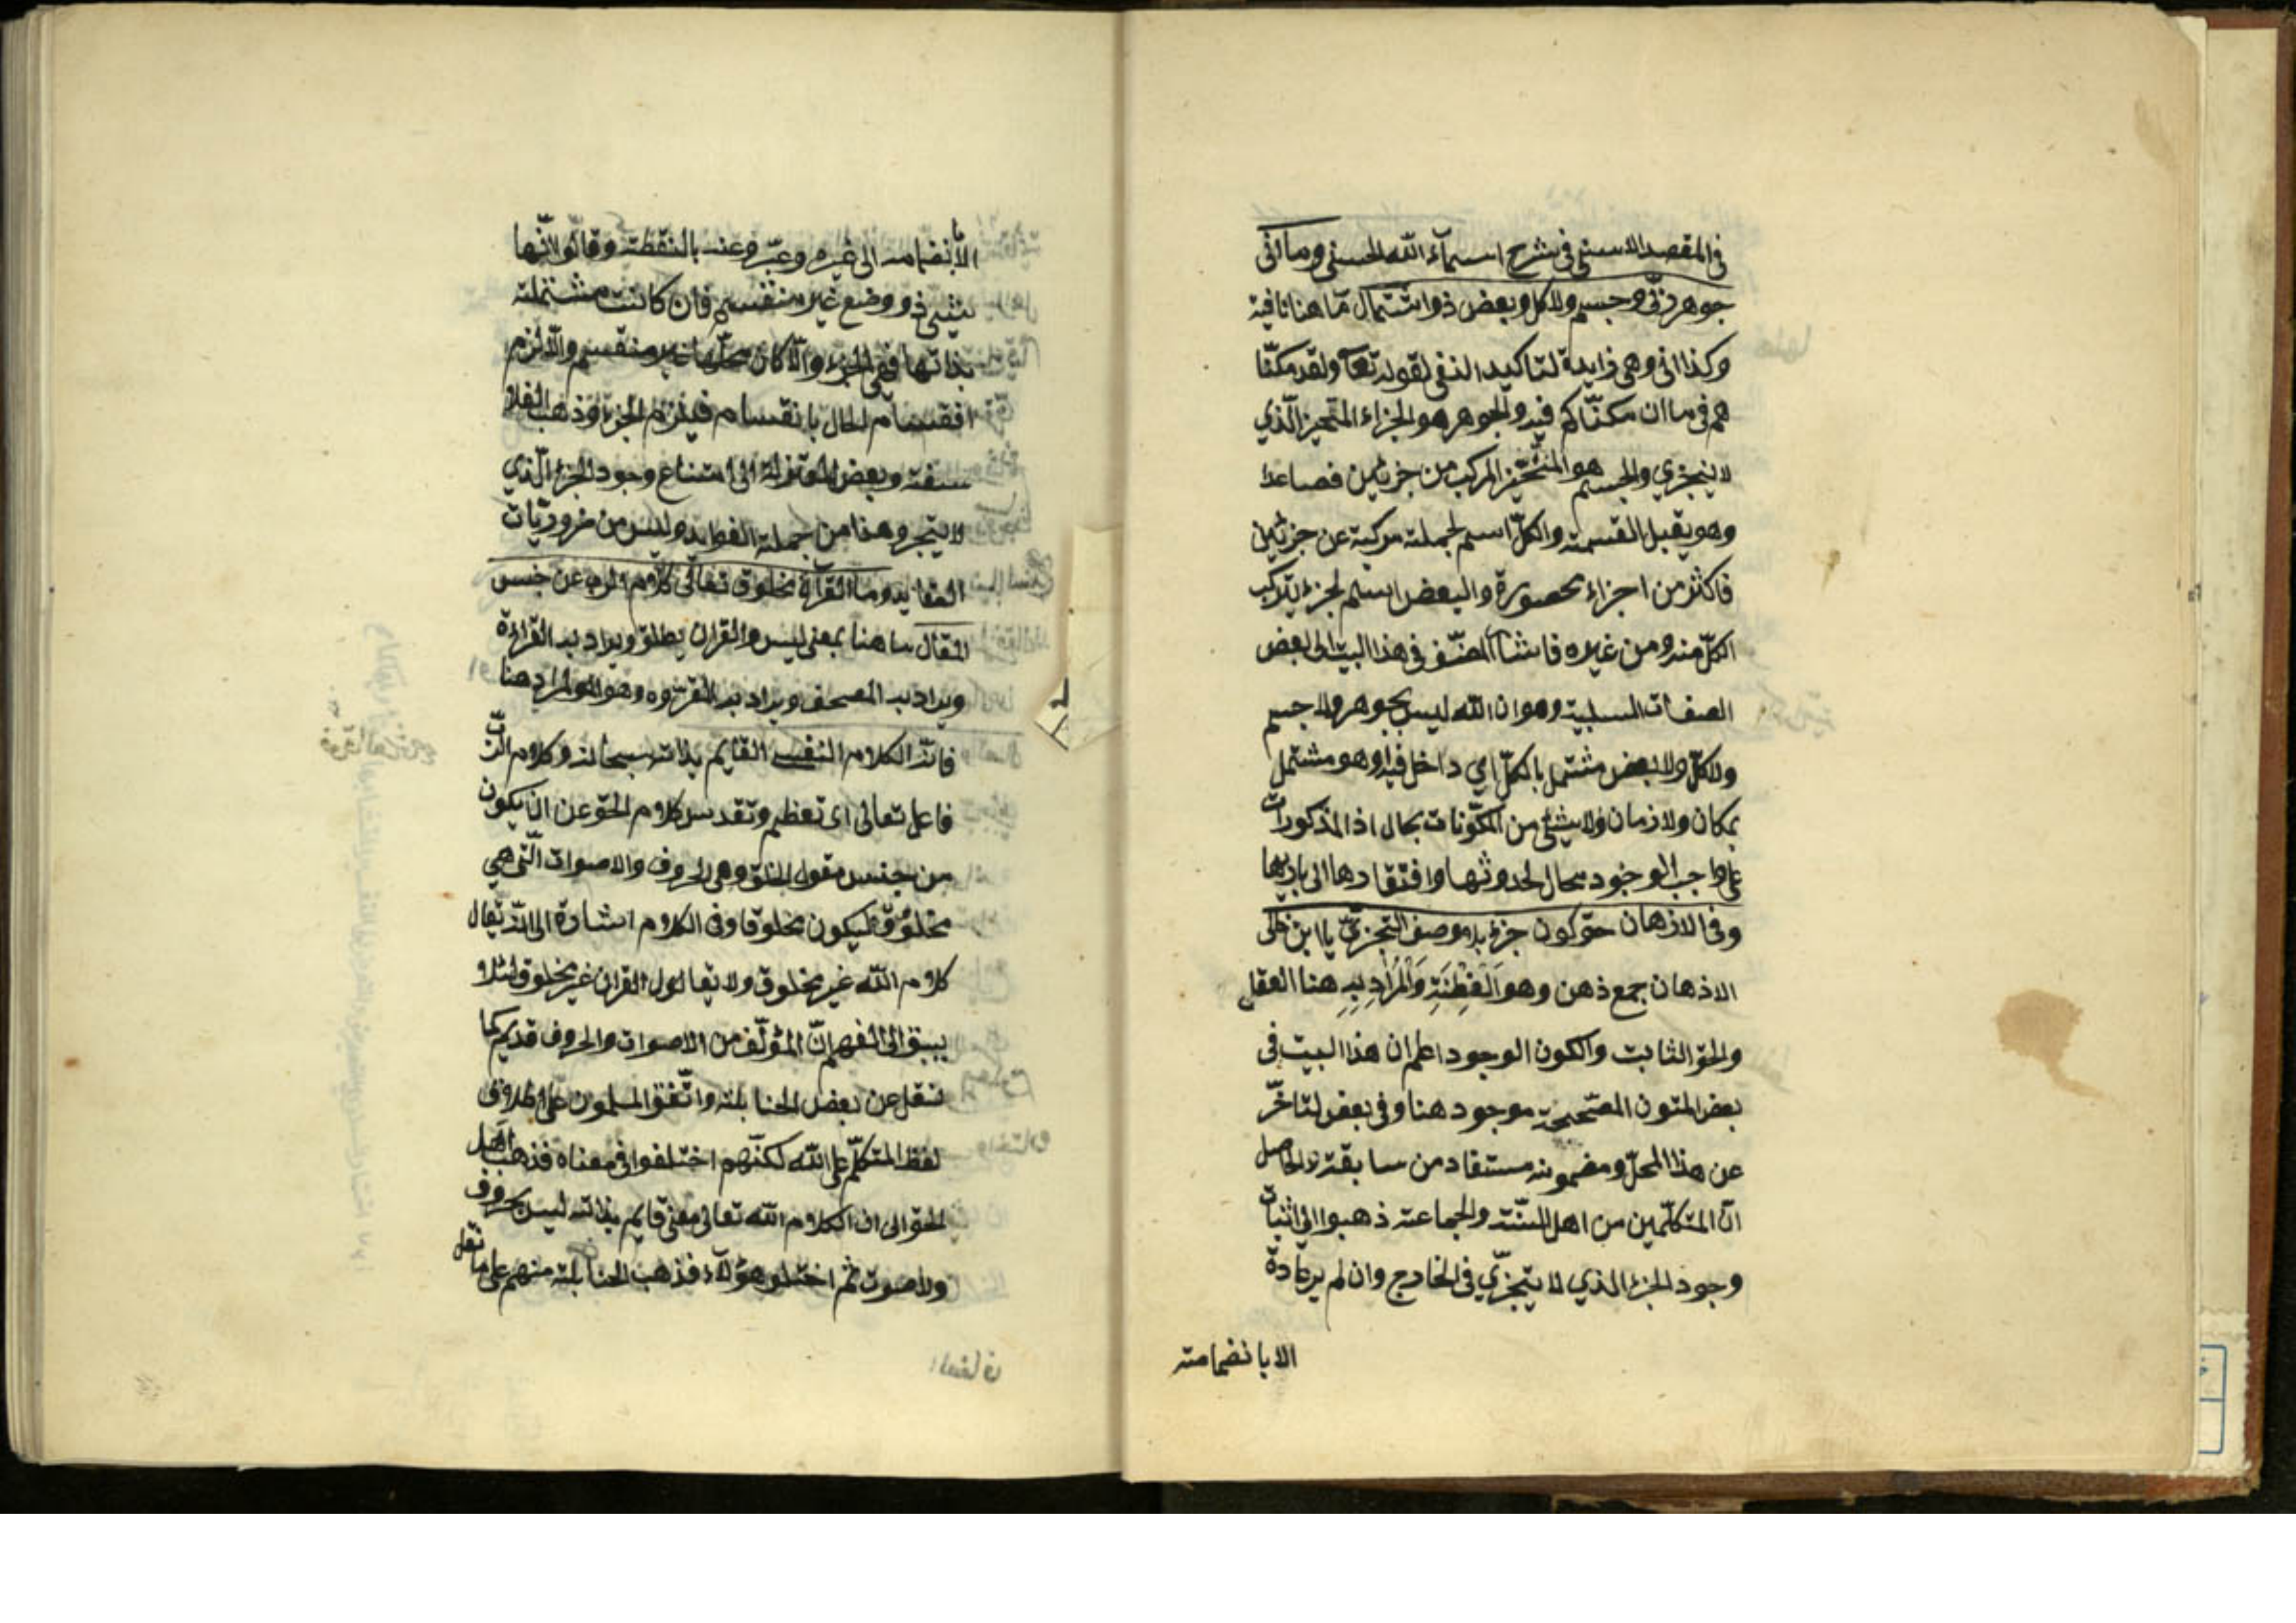 في المقصد الاسنى في شرح اسمآء الله الحسنى وما انى
جوهر ربّي وجسم ولا كل وبعض ذو اشتمال مّا هنا نافية
وكذا انى وهي زايدة لتاكيد النفي لقوله تعآ ولقد مكنّا
هم في ما ان مكنّاكم فيه والجوهر هو الجزاء المتحيز الّذي
لا يتجزي والجسم هو المتحيّز المركب من جزئين فصاعدا
وهو يقبل القسمة والكلّ اسم لجملة مركبة عن جزئين
فاكثر من اجزاء محصورة والبعض اسم لجزء يتركب
الكلّ منه ومن غيره فاشآ المصنّف في هذا البيت الى بعض
الصفات السلبية وهو ان الله ليس بجوهر ولا جسم
ولا كلّ ولا بعض مشتمل بالكلّ اي داخل فيه او هو مشتمل
بمكان ولا زمان ولا بشئ من المكوّنات بحال اذ المذكورات
على واجب الوجود محال لحدوثها وافتقادها الى باريها
وفي الاذهان حق كون جزء بلا وصف التجزيّ يا ابن خالى
الاذهان جمع ذهن وهو الْفِطْنَةِ وَالْمُرَادِ بِهِ هنا العقل
والحق الثابت والكون الوجود اعلم ان هذا البيت في
بعض المتون المصّححة موجود هنا وفي بعض لتاخّر
عن هذا المحلّ ومضمونه مستفاد من سابقته والحاصل
انّ المتكلّمين من اهل السّنّة والجماعة ذهبوا الى اثبات
وجود الجزء الذي لا يتجزّي في الخارج وان لم ير عادة
الا بانضمامته
الا بانضمامه الى غيره وعبّروعنه بالنقطة وقالوا لانّها
شئ ذو وضع غير منقسم فان كانت مشتملة
بذاتها ففي الجزء والّا كان محلّها غير منقسم والّا لزم
انقسام الحال بانقسام فيلزم الجزء وذهب الفلا
سفة وبعض المعتزلة الى امتناع وجود الجزء الّذي
لا يتجز وهذا من جملة الفوايد وليس من ضروريّات
العقايد وما القرآن مخلوق تعالى كلام الرب عن جنس
المقال ما هنا بمعنى ليس والقران يطلق ويراد به القراءة
ويراد به المصحف ويراد به المقروه وهو المراد هنا
فانّه الكلام النفسى القايم بذاته سبحانه وكلام الرّبّ
فاعل تعالى اى تعظيم وتقدس كلام الحق عن ان يكون
من جنس مقول الخلق وهي الحروف والاصوات الّتى هي
مخلوق ليكون مخلوقا وفى الكلام اشارة الى انّه يقال
كلام الله غير مخلوق ولا يقال القران غير مخلوق لئلا
يسبق الى الفهم انّ المؤلّف من الاصوات والحروف قديم كما
نقل عن بعض الحنابلة واتّفق المسلمون على اطلاق
لفظ المتكلّم على الله لكنّهم اختلفوا في معناه فذهب اهل
الحق الى ان الكلام الله تعالى معنى قايم بذاته ليس بحروف
ولا صوت ثم اختلو هؤلآء فذهب الحنابلة منهم على ما نقل